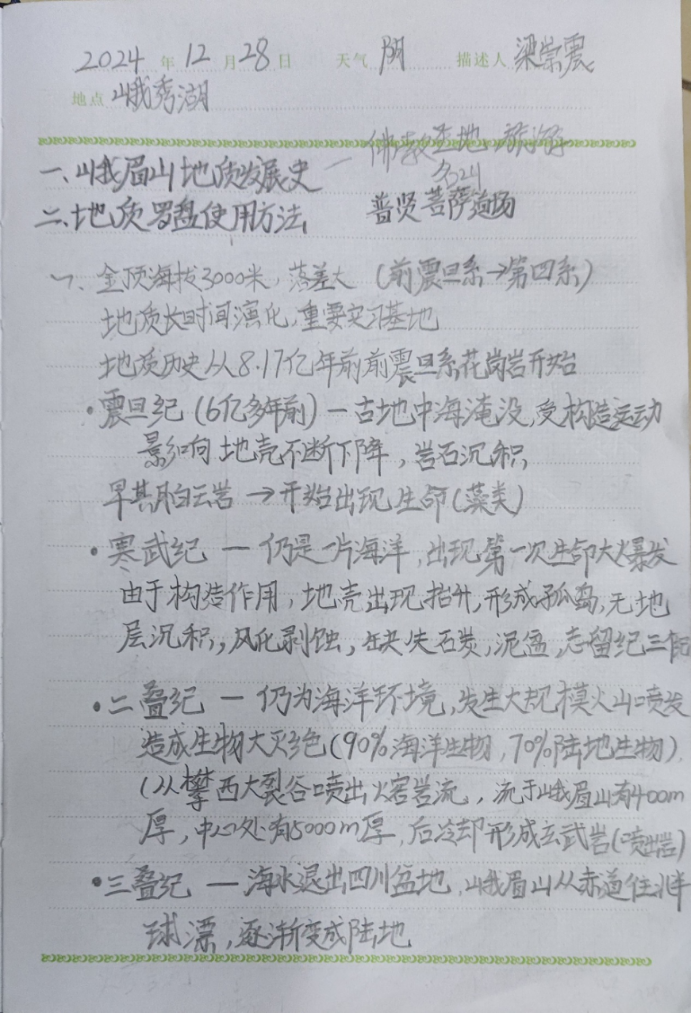 2024 年 12 月 28 日 天气 阴 描述人 梁崇震
地点 峨秀湖
一、峨眉山地质发展史 — 佛教圣地 旅游
名山
二、地质罗盘使用方法 普贤菩萨道场
一、金顶海拔3000米，落差大（前震旦系→第四系）
地质长时间演化，重要实习基地
地质历史从8.17亿年前前震旦系花岗岩开始
·震旦纪（6亿多年前）—古地中海淹没，受构造运动
影响地壳不断下降，岩石沉积，
早期白云岩→开始出现生命（藻类）
·寒武纪 — 仍是一片海洋，出现第一次生命大爆发
由于构造作用，地壳出现抬升，形成孤岛，无地
层沉积，风化剥蚀，缺失石炭，泥盆，志留纪三
·二叠纪 — 仍为海洋环境，发生大规模火山喷发
造成生物大灭绝（90%海洋生物，70%陆地生物）
（从攀西大裂谷喷出火窖岩流，流于峨眉山有400m
厚，中心处有5000m厚，后冷却形成玄武岩（喷出岩）
·三叠纪 — 海水退出四川盆地，峨眉山从赤道往北半
球漂，逐渐变成陆地